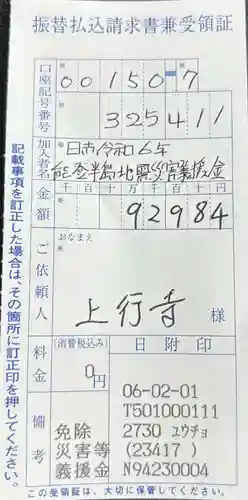 振替払込請求書兼受領証
口座記号番号
00150-7
325411
加入者名
日赤令和6年
能登半島地震災害義援金
金額
千 百 十 万 千 百 十 円
92984
ご依頼人
おなまえ
上行寺 様
料金
(消費税込み)
0円
日附印
備考
免除
災害等
義援金
06-02-01
T501000111
2730 ユウチョ
(23417 )
N94230004
記載事項を訂正した場合は、その箇所に訂正印を押してください。
この受領証は、大切に保管してください。